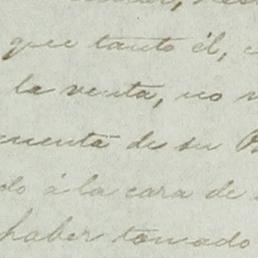 que tanto él,
la venta, no
cuenta de su
do á la cara de
haber tomado